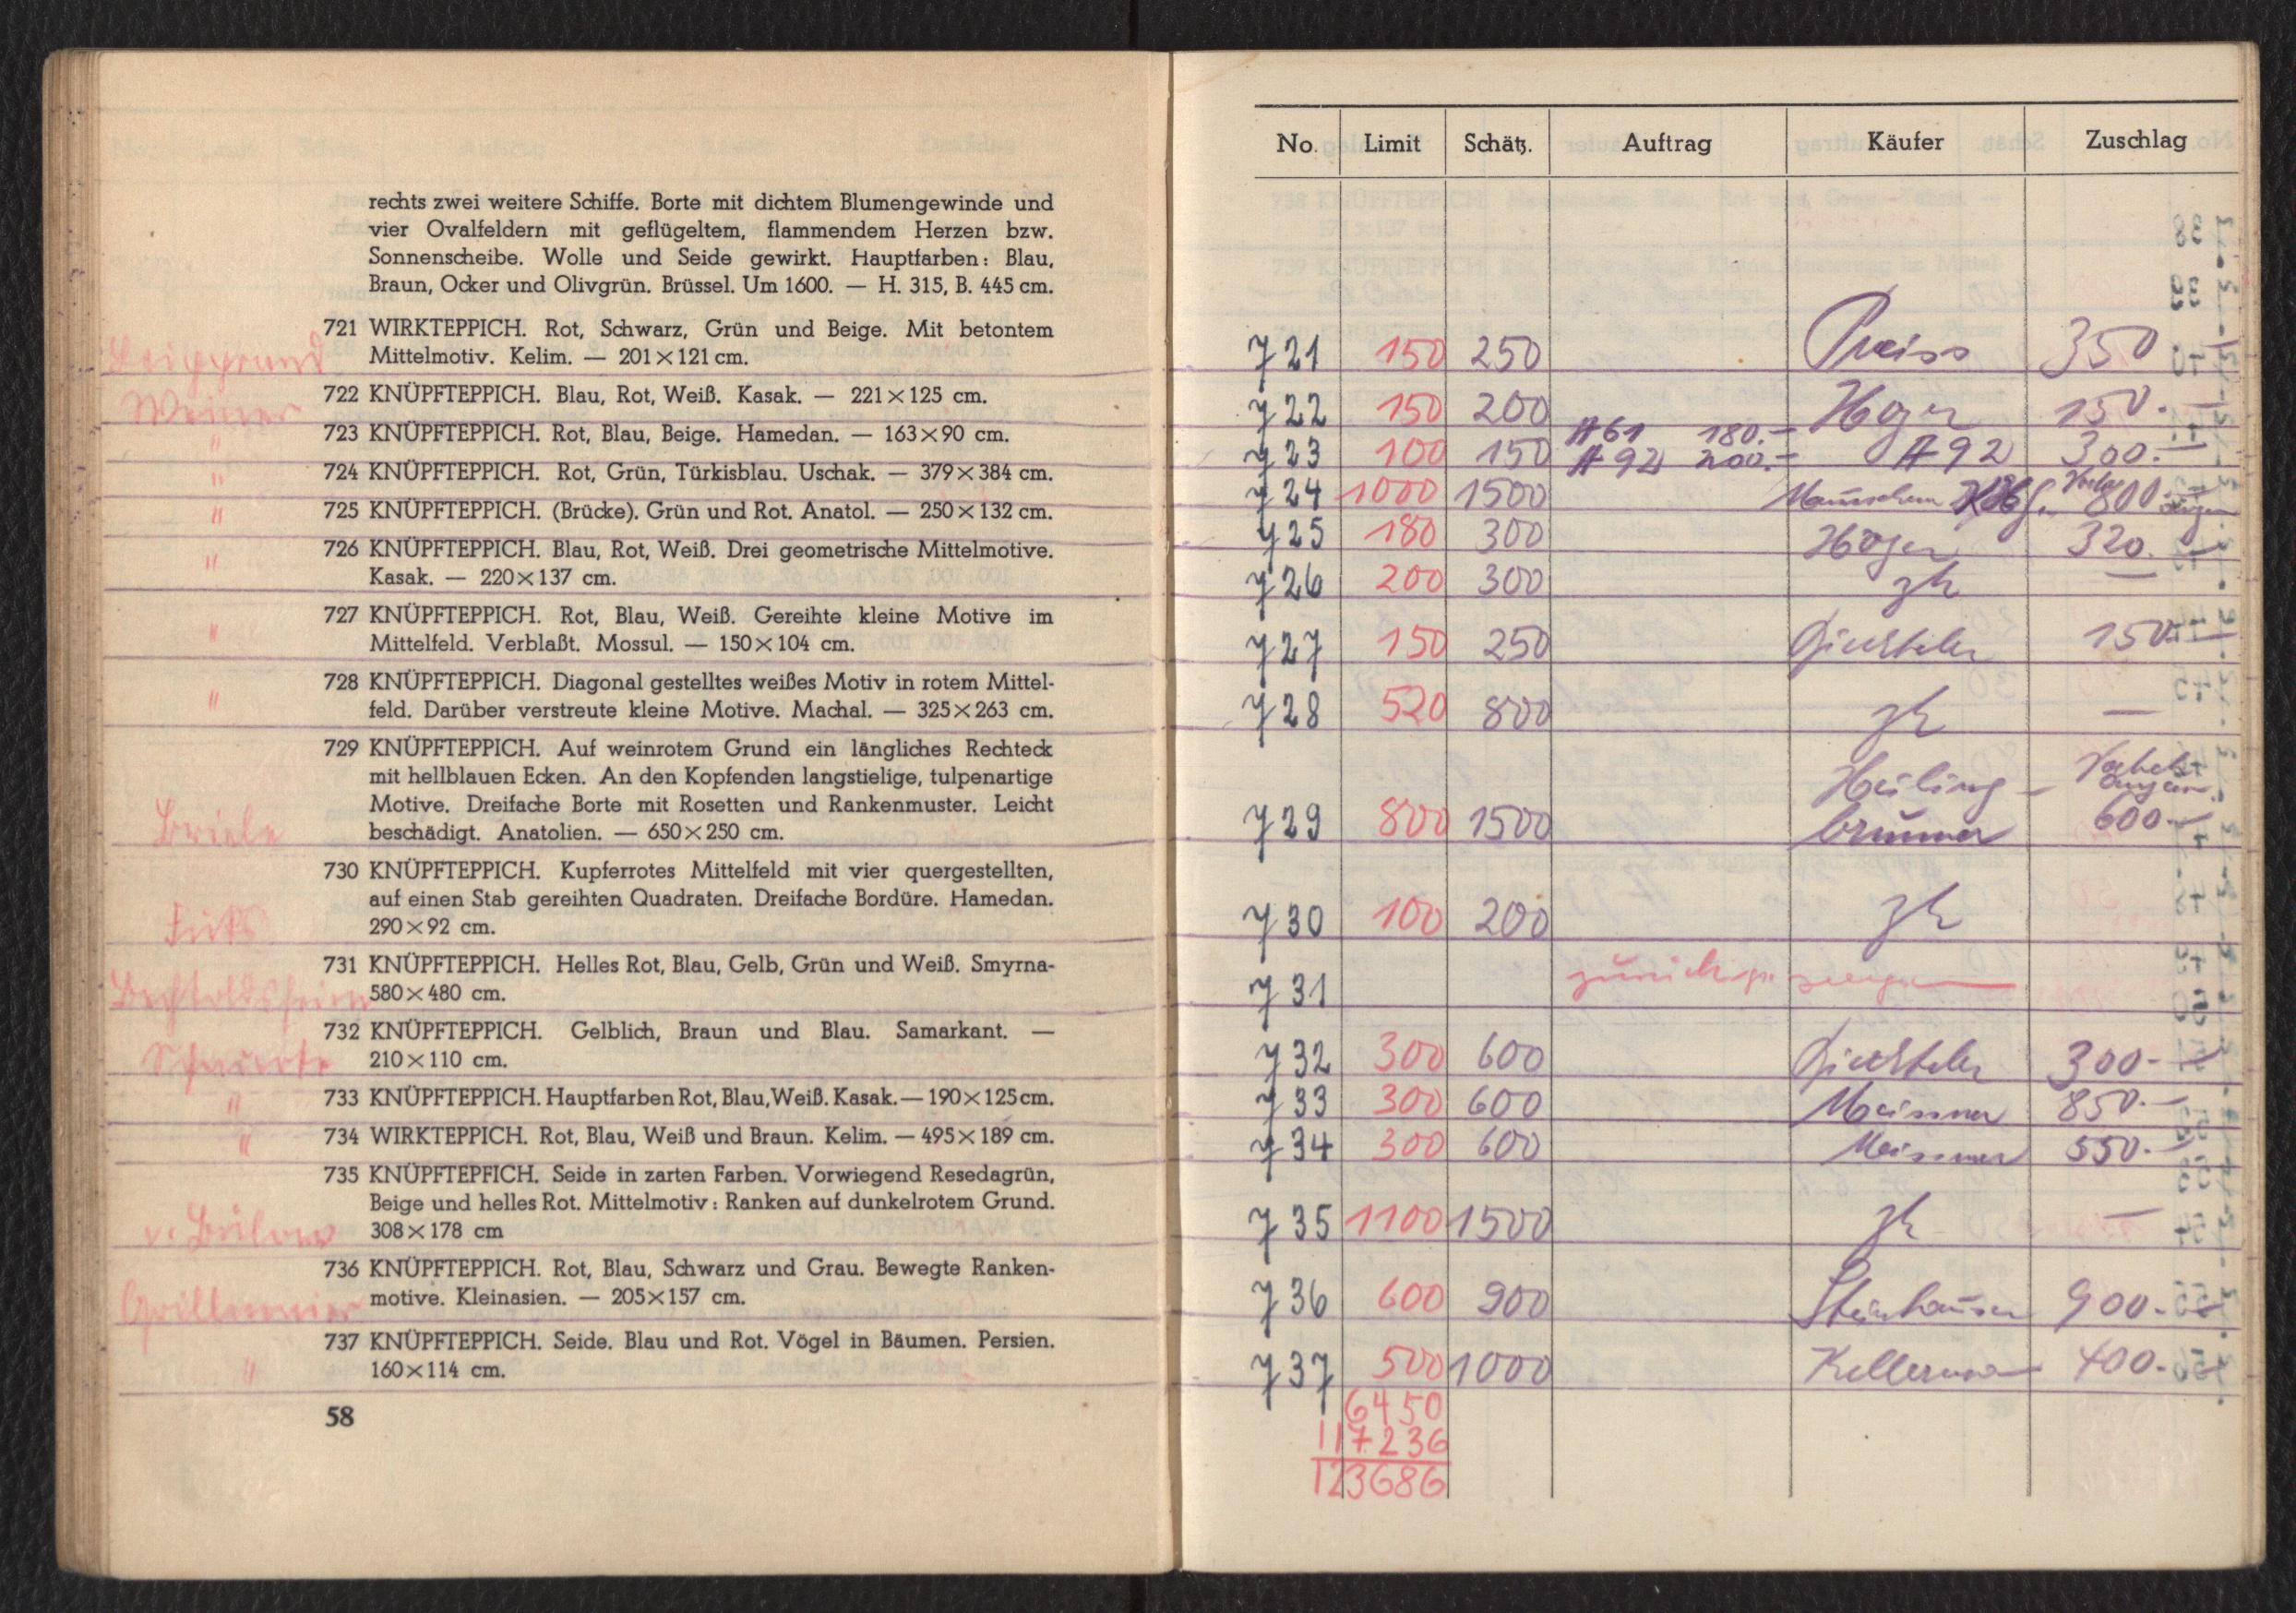 rechts zwei weitere Schiffe. Borte mit dichtem Blumengewinde und
vier Ovalfeldern mit geflügeltem, flammendem Herzen bzw.
Sonnenscheibe. Wolle und Seide gewirkt. Hauptfarben: Blau,
Braun, Ocker und Olivgrün. Brüssel. Um 1600. — H. 315, B. 445 cm.
721 WIRKTEPPICH. Rot, Schwarz, Grün und Beige. Mit betontem
Mittelmotiv. Kelim. — 201×121 cm.
Weiner 722 KNÜPFTEPPICH. Blau, Rot, Weiß. Kasak. — 221×125 cm.
" 723 KNÜPFTEPPICH. Rot, Blau, Beige. Hamedan. — 163×90 cm.
" 724 KNÜPFTEPPICH. Rot, Grün, Türkisblau. Uschak. — 379×384 cm.
" 725 KNÜPFTEPPICH. (Brücke). Grün und Rot. Anatol. — 250×132 cm.
" 726 KNÜPFTEPPICH. Blau, Rot, Weiß. Drei geometrische Mittelmotive.
Kasak. — 220×137 cm.
727 KNÜPFTEPPICH. Rot, Blau, Weiß. Gereihte kleine Motive im
" Mittelfeld. Verblaßt. Mossul. — 150×104 cm.
728 KNÜPFTEPPICH. Diagonal gestelltes weißes Motiv in rotem Mittel-
" feld. Darüber verstreute kleine Motive. Machal. — 325×263 cm.
729 KNÜPFTEPPICH. Auf weinrotem Grund ein längliches Rechteck
mit hellblauen Ecken. An den Kopfenden langstielige, tulpenartige
Motive. Dreifache Borte mit Rosetten und Rankenmuster. Leicht
beschädigt. Anatolien. — 650×250 cm.
730 KNÜPFTEPPICH. Kupferrotes Mittelfeld mit vier quergestellten,
auf einen Stab gereihten Quadraten. Dreifache Bordüre. Hamedan.
290×92 cm.
731 KNÜPFTEPPICH. Helles Rot, Blau, Gelb, Grün und Weiß. Smyrna-
Bechtoldsheim 580×480 cm.
732 KNÜPFTEPPICH. Gelblich, Braun und Blau. Samarkant. —
210×110 cm.
" 733 KNÜPFTEPPICH. Hauptfarben Rot, Blau, Weiß. Kasak. — 190×125 cm.
" 734 WIRKTEPPICH. Rot, Blau, Weiß und Braun. Kelim. — 495×189 cm.
735 KNÜPFTEPFICH. Seide in zarten Farben. Vorwiegend Resedagrün,
Beige und helles Rot. Mittelmotiv: Ranken auf dunkelrotem Grund.
v. Bülow 308×178 cm
736 KNÜPFTEPPICH. Rot, Blau, Schwarz und Grau. Bewegte Ranken-
Grillenmeier motive. Kleinasien. — 205×157 cm.
737 KNÜPFTEPPICH. Seide. Blau und Rot. Vögel in Bäumen. Persien.
" 160×114 cm.
58
No. Limit Schätz. Auftrag Käufer Zuschlag
721 150 250 Preiss 350
722 150 200 Höger 150.–
A 61 180.–
723 100 150 A 92 200.– A 92 300.–
724 1000 1500 800
725 180 300 Höger 320.–
726 200 300 zk —
727 150 250 150.–
728 520 800 zk —
Heiling-
729 800 1500 brunner 600.–
730 100 200 zk
731 zurückgezogen
732 300 600 300.–
733 300 600 Meissner 850.–
734 300 600 Meissner 550.–
735 1100 1500 zk —
736 600 900 Steinhauser 900.–
737 500 1000 Kellerer 400.–
6450
117236
123686